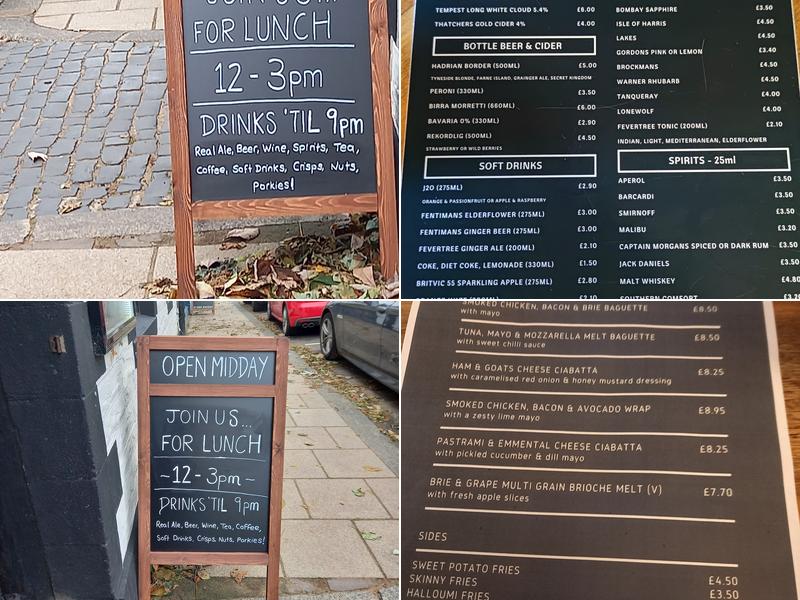 JOIN US...
FOR LUNCH
12-3pm
DRINKS 'TIL 9pm
Real Ale, Beer, Wine, Spirits, Tea,
Coffee, Soft Drinks, Crisps, Nuts,
Porkies!
TEMPEST LONG WHITE CLOUD 5.4% £6.00
THATCHERS GOLD CIDER 4% £4.00
BOTTLE BEER & CIDER
HADRIAN BORDER (500ML) £5.00
TYNESIDE BLONDE, FARNE ISLAND, GRAINGER ALE, SECRET KINGDOM
PERONI (330ML) £3.50
BIRRA MORRETTI (660ML) £6.00
BAVARIA 0% (330ML) £2.90
REKORDLIG (500ML) £4.50
STRAWBERRY OR WILD BERRIES
SOFT DRINKS
J2O (275ML) £2.90
ORANGE & PASSIONFRUIT OR APPLE & RASPBERRY
FENTIMANS ELDERFLOWER (275ML) £3.00
FENTIMANS GINGER BEER (275ML) £3.00
FEVERTREE GINGER ALE (200ML) £2.10
COKE, DIET COKE, LEMONADE (330ML) £1.50
BRITVIC 55 SPARKLING APPLE (275ML) £2.80
£2.10
BOMBAY SAPPHIRE £3.50
ISLE OF HARRIS £4.50
LAKES £4.50
GORDONS PINK OR LEMON £3.40
BROCKMANS £4.50
WARNER RHUBARB £4.50
TANQUERAY £4.00
LONEWOLF £4.00
FEVERTREE TONIC (200ML) £2.10
INDIAN, LIGHT, MEDITERRANEAN, ELDERFLOWER
SPIRITS - 25ml
APEROL £3.50
BARCARDI £3.50
SMIRNOFF £3.50
MALIBU £3.20
CAPTAIN MORGANS SPICED OR DARK RUM £3.50
JACK DANIELS £3.50
MALT WHISKEY £4.80
SOUTHERN COMFORT £3.20
OPEN MIDDAY
JOIN US...
FOR LUNCH
~12-3pm~
DRINKS 'TIL 9pm
Real Ale, Beer, Wine, Tea, Coffee,
Soft Drinks, Crisps, Nuts, Porkies!
SMOKED CHICKEN, BACON & BRIE BAGUETTE £8.50
with mayo
TUNA, MAYO & MOZZARELLA MELT BAGUETTE £8.50
with sweet chilli sauce
HAM & GOATS CHEESE CIABATTA £8.25
with caramelised red onion & honey mustard dressing
SMOKED CHICKEN, BACON & AVOCADO WRAP £8.95
with a zesty lime mayo
PASTRAMI & EMMENTAL CHEESE CIABATTA £8.25
with pickled cucumber & dill mayo
BRIE & GRAPE MULTI GRAIN BRIOCHE MELT (V) £7.70
with fresh apple slices
SIDES
SWEET POTATO FRIES £4.50
SKINNY FRIES £3.50
HALLOUMI FRIES